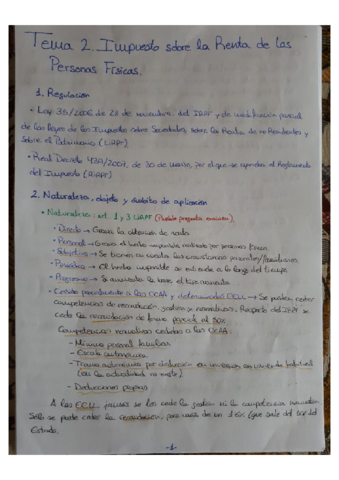 Tema 2. Impuesto sobre la Renta de las
Personas Físicas.
1. Regulación
• Ley 35/2006 de 28 de noviembre, del IRPF y de modificación parcial
de las leyes de los Impuestos sobre Sociedades, sobre la Renta de no Residentes y
sobre el Patrimonio (LIRPF)
• Real Decreto 439/2007, de 30 de marzo, por el que se aprueba el Reglamento
del Impuesto (RIRPF)
2. Naturaleza, objeto y ámbito de aplicación
• Naturaleza: art. 1 y 3 LIRPF (Posible pregunta examen)
- Directo → Grava la obtención de renta
- Personal → Grava el hecho imponible realizado por personas físicas
- Subjetivo → Se tienen en cuenta las circunstancias personales/familiares
- Periódico → El hecho imponible se extiende a lo largo del tiempo
- Progresivo → Si aumenta la base el tipo aumenta
- Cedido parcialmente a las CCAA y determinadas EELL → Se pueden ceder
competencias de recaudación, gestión y normativas. Respecto del IRPF se
cede la recaudación de forma parcial al 50%
Competencias normativas cedidas a las CCAA:
- Mínimo personal familiar
- Escala autonómica
- Tramo autonómico por deducción en inversión en vivienda habitual
(en la actualidad no existe)
- Deducciones propias
A las EELL jamás se les cede la gestión ni la competencia normativa
Solo se puede ceder la recaudación, pero
del
Estado.
-1-